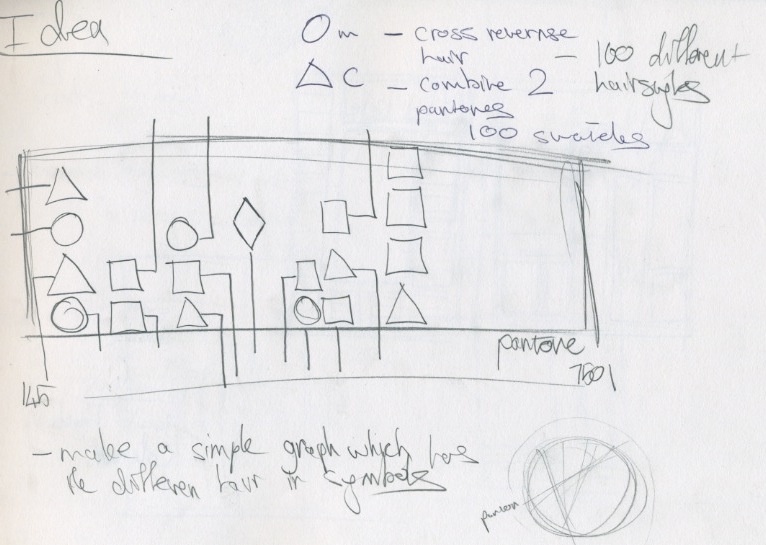 Idea
O m - cross revernse
hair
△ C - combine 2
pantones
100 swatches
- 100 different
hairstyles
pantone
145
7501
- make a simple graph which has
the differen hair in symbols